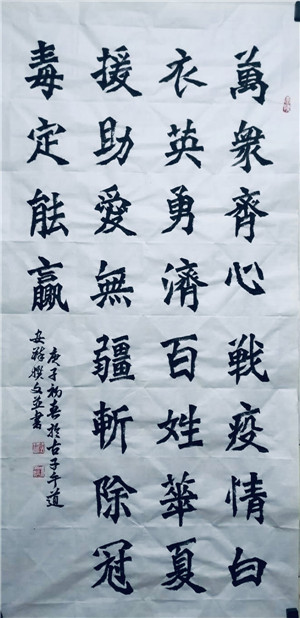 萬衆齊心戰疫情白
衣英勇濟百姓華夏
援助愛無疆斬除冠
毒定能贏
庚子初春於古子午道
安群撰文並書